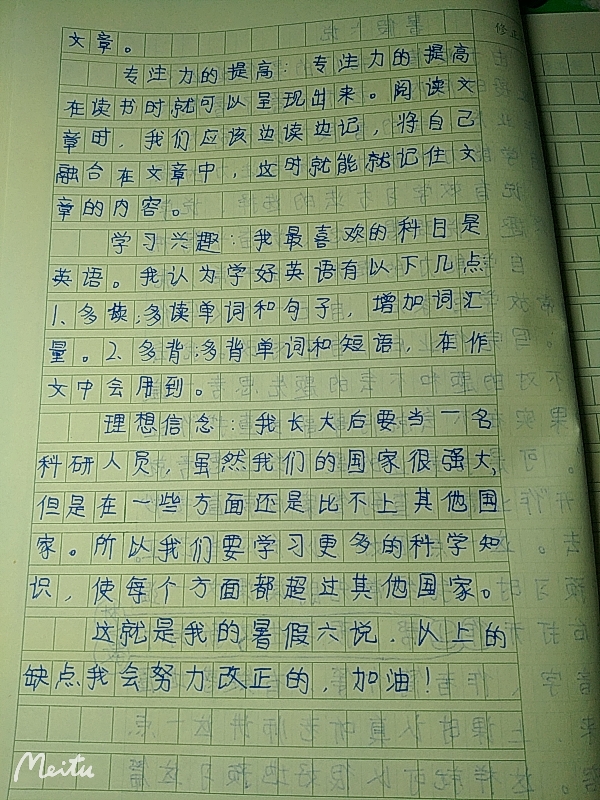 修正
文章。
专注力的提高：专注力的提高
在读书时就可以呈现出来。阅读文
章时，我们应该边读边记，将自己
融合在文章中，这时就能就记住文
章的内容。
学习兴趣：我最喜欢的科目是
英语。我认为学好英语有以下几点
1、多读:多读单词和句子，增加词汇
量。2、多背:多背单词和短语，在作
文中会用到。
理想信念：我长大后要当一名
科研人员，虽然我们的国家很强大，
但是在一些方面还是比不上其他国
家。所以我们要学习更多的科学知
识，使每个方面都超过其他国家。
这就是我的暑假六说，以上的
缺点我会努力改正的，加油！
Meitu